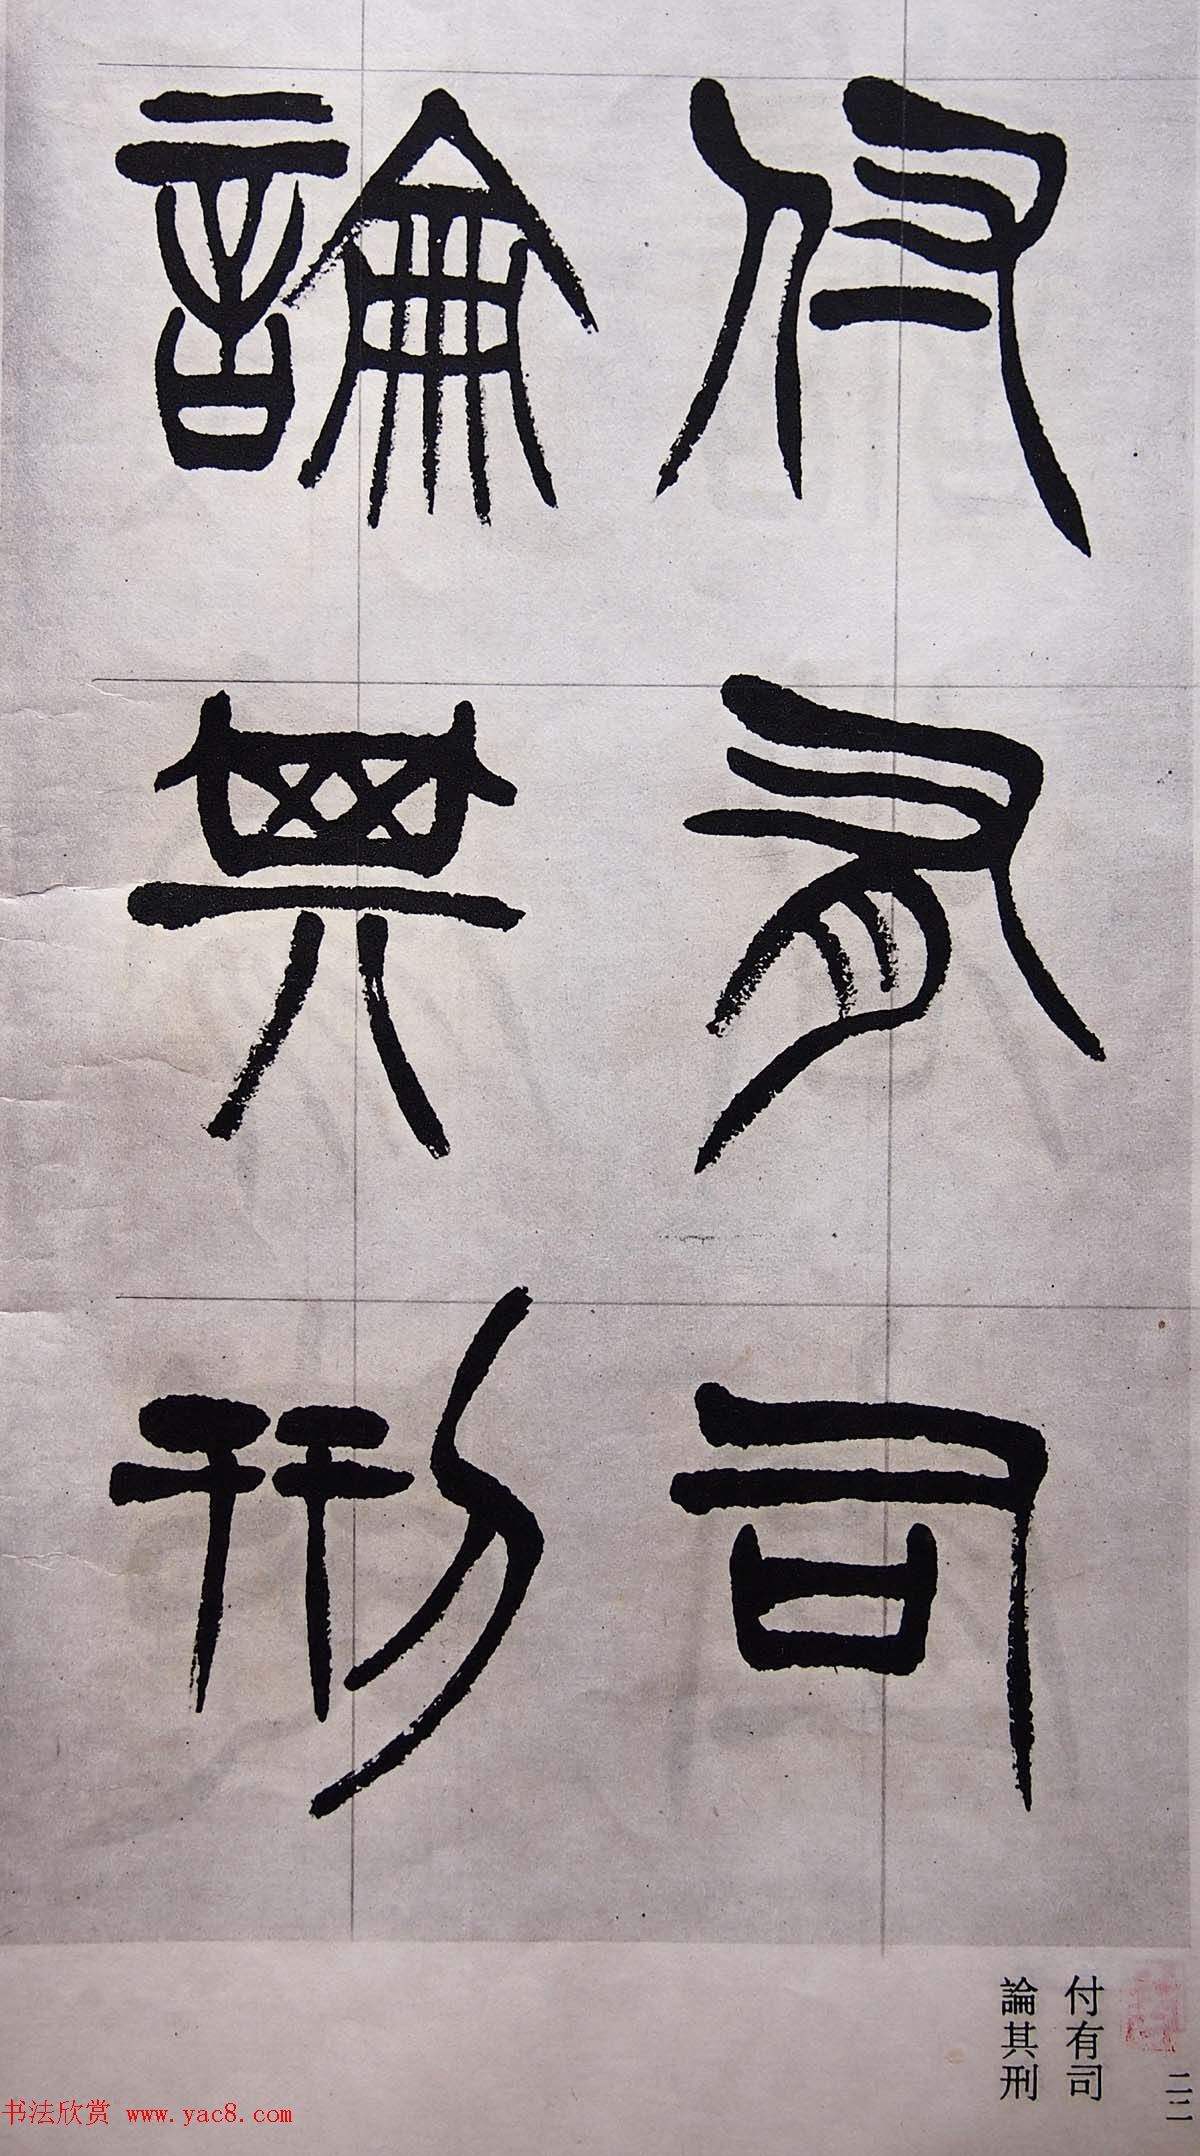 付有司
論其刑
付有司
論其刑
二二
书法欣赏 www.yac8.com